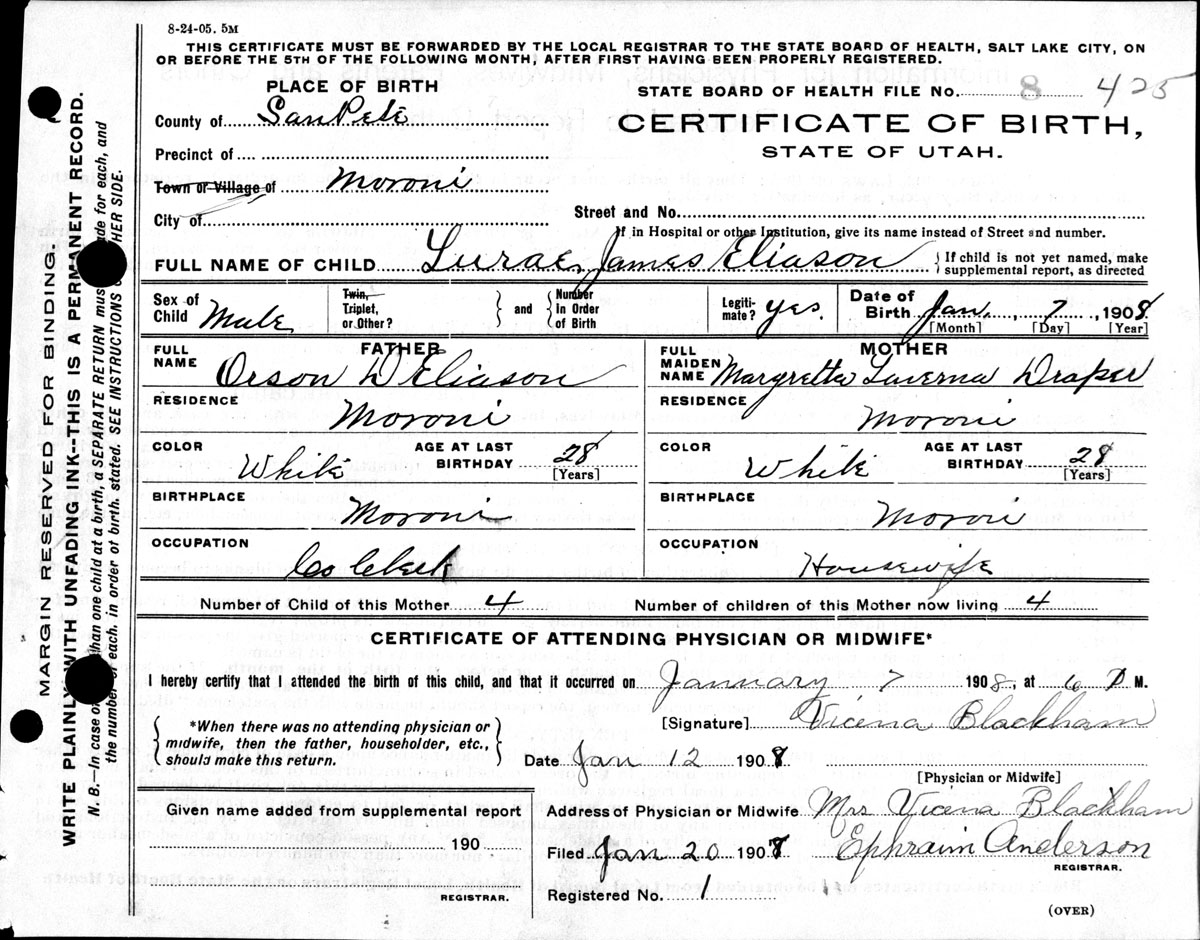 8-24-05. 5M
THIS CERTIFICATE MUST BE FORWARDED BY THE LOCAL REGISTRAR TO THE STATE BOARD OF HEALTH, SALT LAKE CITY, ON
OR BEFORE THE 5TH OF THE FOLLOWING MONTH, AFTER FIRST HAVING BEEN PROPERLY REGISTERED.
PLACE OF BIRTH
STATE BOARD OF HEALTH FILE No. 8 425
County of SanPete
CERTIFICATE OF BIRTH,
STATE OF UTAH.
Precinct of
Town or Village of Moroni
City of
Street and No.
If in Hospital or other Institution, give its name instead of Street and number.
FULL NAME OF CHILD Lurae James Eliason { If child is not yet named, make
supplemental report, as directed
Sex of
Child Male
Twin,
Triplet,
or Other? } and { Number
In Order
of Birth
Legiti-
mate? yes.
Date of
Birth Jan. , 7 , 1908.
[Month] [Day] [Year]
FATHER
FULL
NAME Orson D Eliason
RESIDENCE
Moroni
COLOR White AGE AT LAST
BIRTHDAY 28
[Years]
BIRTHPLACE
Moroni
OCCUPATION
Co Clerk
MOTHER
FULL
MAIDEN
NAME Margretta Laverna Draper
RESIDENCE
Moroni
COLOR White AGE AT LAST
BIRTHDAY 28
[Years]
BIRTHPLACE
Moroni
OCCUPATION
Housewife
Number of Child of this Mother 4 Number of children of this Mother now living 4
CERTIFICATE OF ATTENDING PHYSICIAN OR MIDWIFE*
I hereby certify that I attended the birth of this child, and that it occurred on January 7 1908, at 6 P M.
[Signature] Vicena Blackham
{ *When there was no attending physician or
midwife, then the father, householder, etc.,
should make this return. }
Date Jan 12 1908
[Physician or Midwife]
Given name added from supplemental report
190
REGISTRAR.
Address of Physician or Midwife Mrs Vicena Blackham
Filed Jan 20 1908 Ephraim Anderson
REGISTRAR.
Registered No. 1
(OVER)
MARGIN RESERVED FOR BINDING.
WRITE PLAINLY WITH UNFADING INK--THIS IS A PERMANENT RECORD.
N. B.—In case of than one child at a birth, a SEPARATE RETURN must made for each, and
the number of each. in order of birth. stated. SEE INSTRUCTIONS HER SIDE.